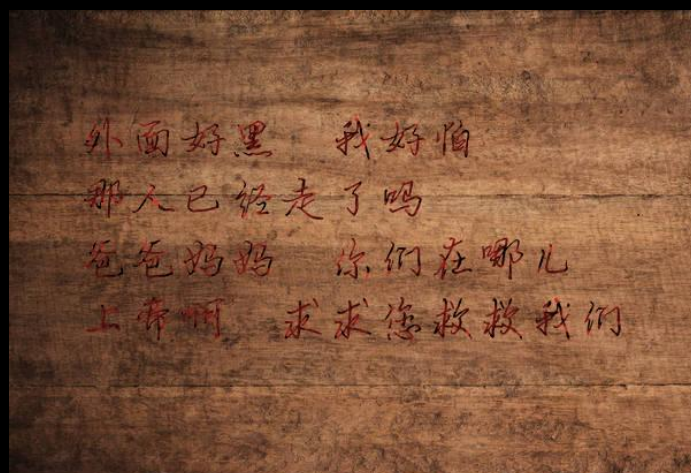 外面好黑 我好怕
那人已经走了吗
爸爸妈妈 你们在哪儿
上帝啊 求求您救救我们